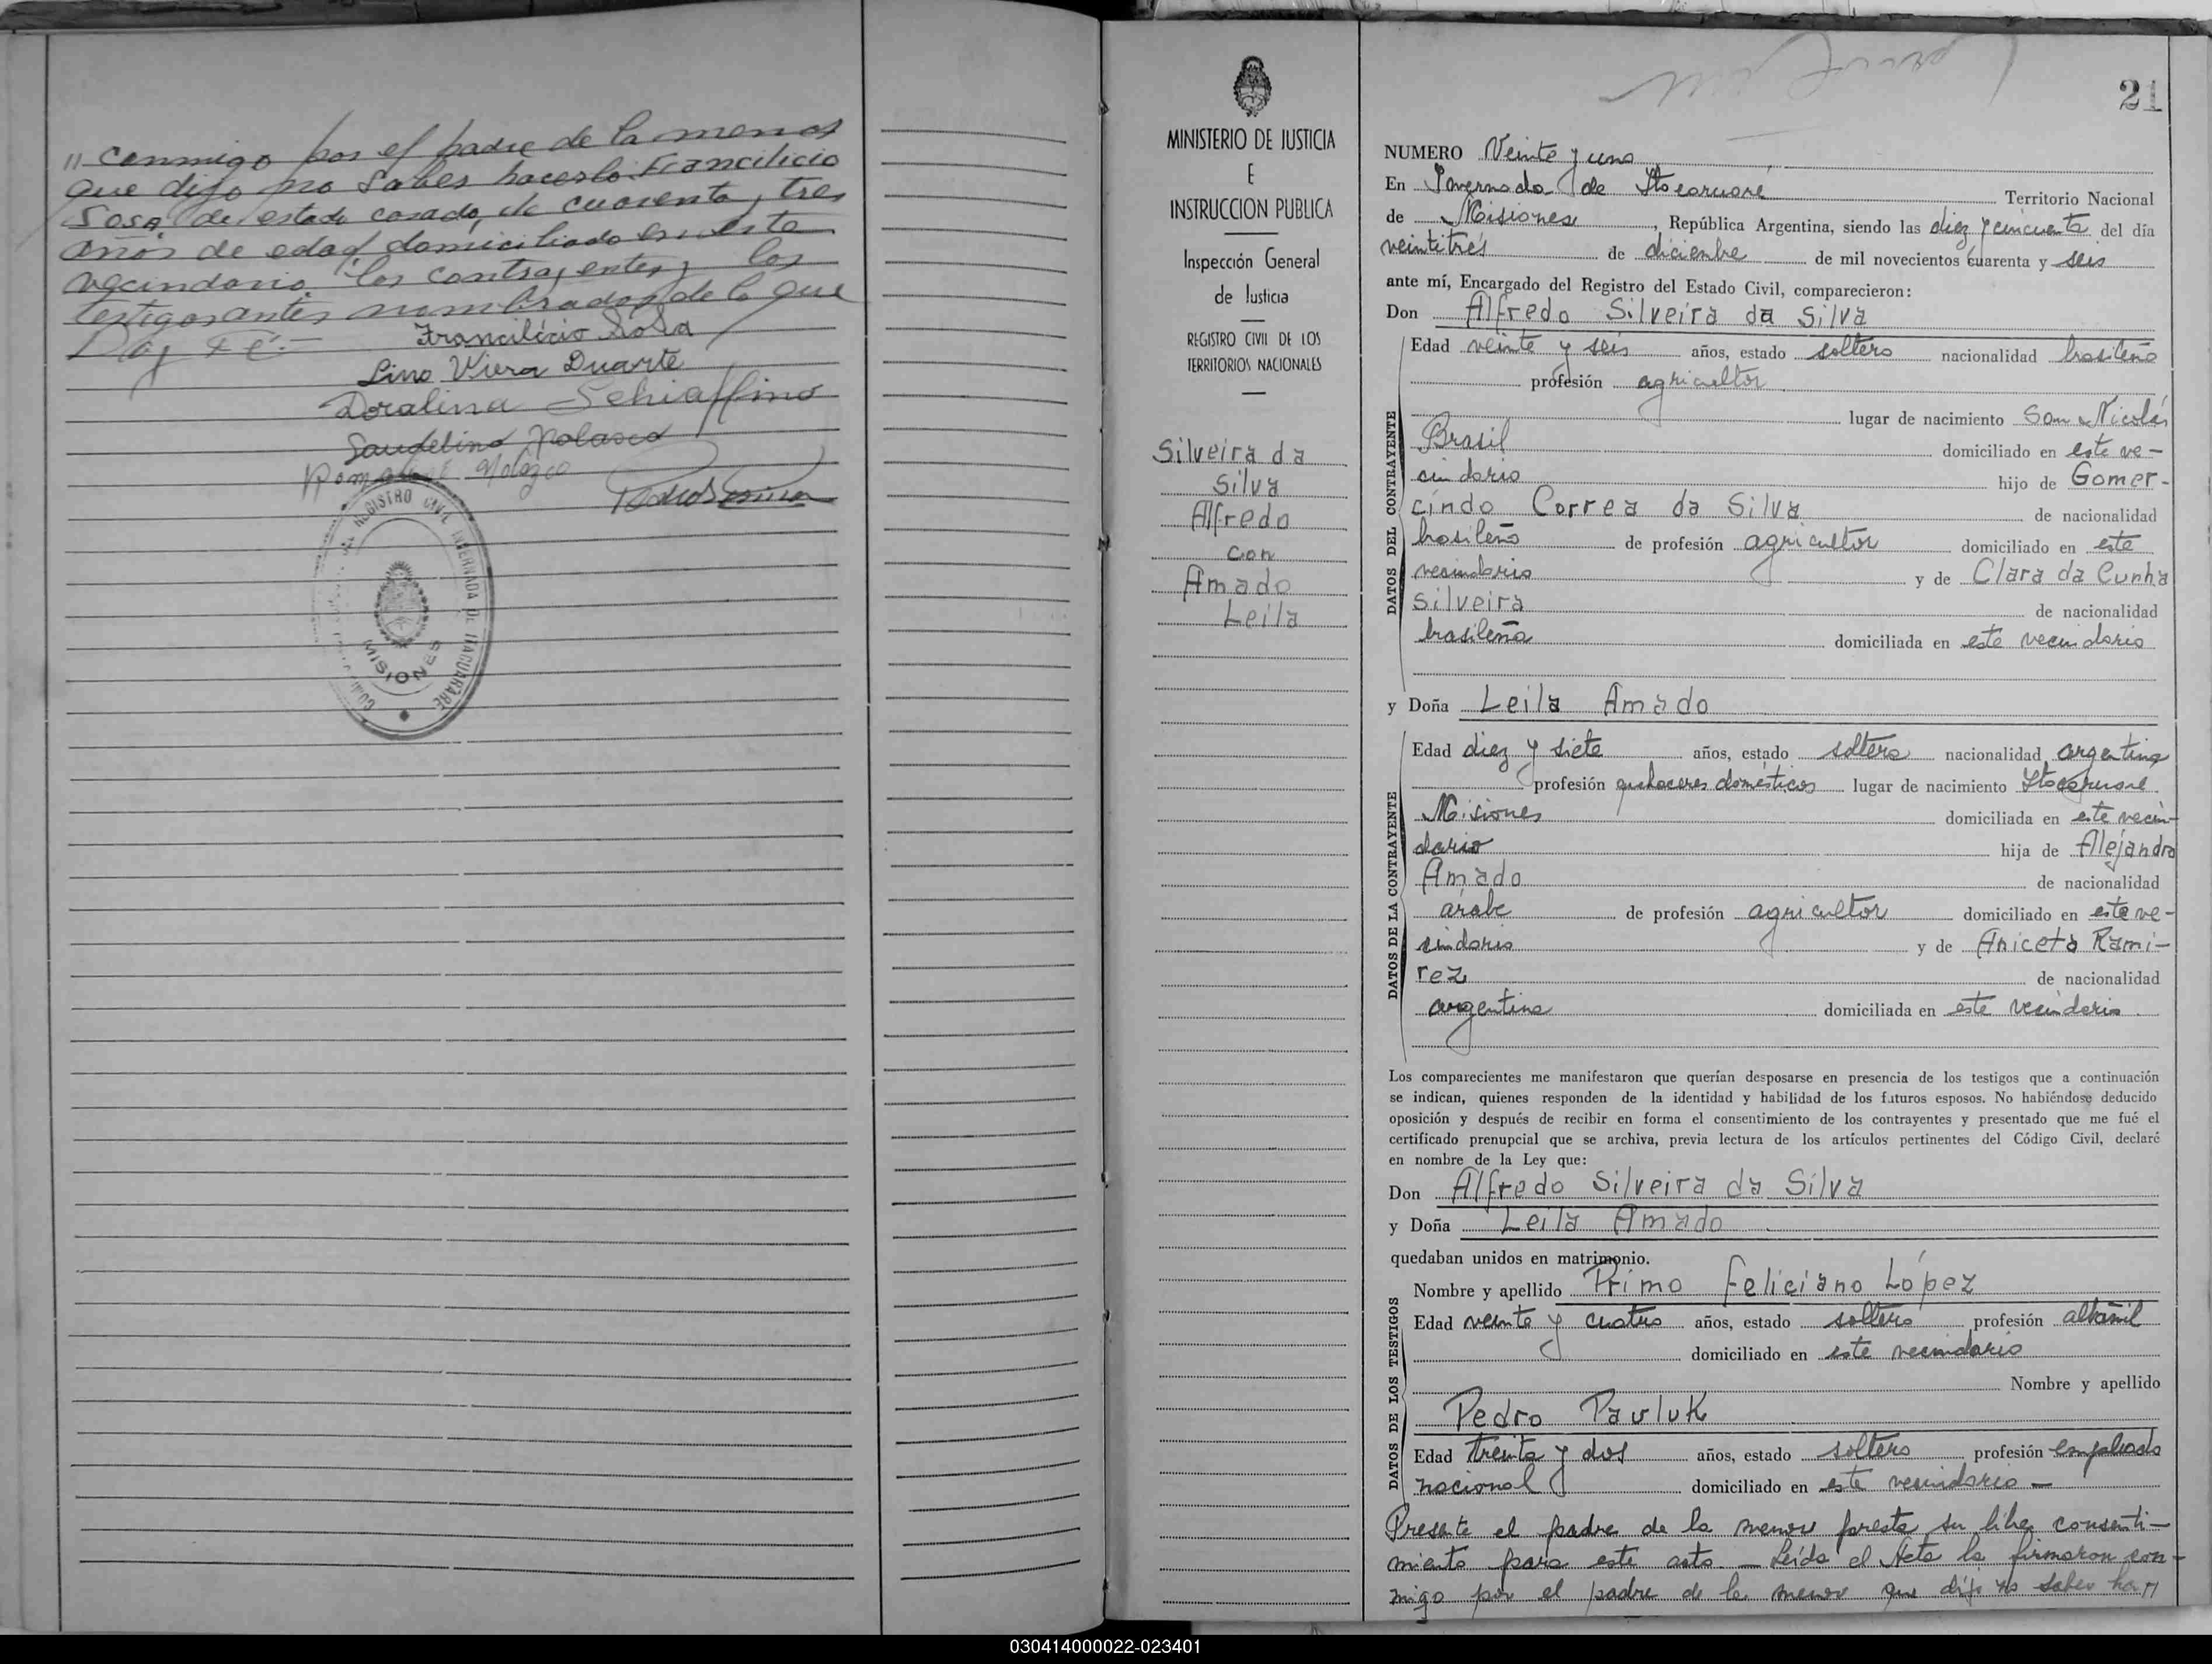 " conmigo por el padre de la menor
que dijo no saber hacerlo Francilicio
Sosa, de estado casado, de cuarenta y tres
años de edad, domiciliado en este
vecindario, los contrayentes y los
testigos antes nombrados de lo que
Doy Fé.-
Francilicio Sosa
Lino Viera Duarte
Doralina Schiaffino
REGISTRO CIVIL INVERNADA DE ITACUARARE
MISIONES
21
MINISTERIO DE JUSTICIA
E
INSTRUCCION PUBLICA
Inspección General
de Justicia
REGISTRO CIVIL DE LOS
TERRITORIOS NACIONALES
Silveira da
Silva
Alfredo
con
Amado
Leila
NUMERO Veinte y uno
En Invernada de Itacaruaré Territorio Nacional
de Misiones, República Argentina, siendo las diez y cincuenta del día
veintitrés de diciembre de mil novecientos cuarenta y seis
ante mí, Encargado del Registro del Estado Civil, comparecieron:
Don Alfredo Silveira da Silva
DATOS DEL CONTRAYENTE
Edad veinte y seis años, estado soltero nacionalidad brasileño
profesión agricultor
lugar de nacimiento San Nicolás
Brasil domiciliado en este ve-
cindario hijo de Gomer-
cindo Correa da Silva de nacionalidad
brasileño de profesión agricultor domiciliado en este
vecindario y de Clara da Cunha
Silveira de nacionalidad
brasileña domiciliada en este vecindario
y Doña Leila Amado
DATOS DE LA CONTRAYENTE
Edad diez y siete años, estado soltera nacionalidad argentina
profesión quehaceres domésticos lugar de nacimiento Itacaruaré
Misiones domiciliada en este vecin-
dario hija de Alejandro
Amado de nacionalidad
árabe de profesión agricultor domiciliado en este ve-
cindario y de Aniceta Rami-
rez de nacionalidad
argentina domiciliada en este vecindario.
Los comparecientes me manifestaron que querían desposarse en presencia de los testigos que a continuación
se indican, quienes responden de la identidad y habilidad de los futuros esposos. No habiéndose deducido
oposición y después de recibir en forma el consentimiento de los contrayentes y presentado que me fué el
certificado prenupcial que se archiva, previa lectura de los artículos pertinentes del Código Civil, declaré
en nombre de la Ley que:
Don Alfredo Silveira da Silva
y Doña Leila Amado
quedaban unidos en matrimonio.
DATOS DE LOS TESTIGOS
Nombre y apellido Primo Feliciano López
Edad veinte y cuatro años, estado soltero profesión albañil
domiciliado en este vecindario
Nombre y apellido
Pedro Pauluk
Edad treinta y dos años, estado soltero profesión empleado
nacional domiciliado en este vecindario -
Presente el padre de la menor presta su libre consenti-
miento para este acto. - Leída el Acta la firmaron con-
migo por el padre de la menor que dijo no saber ha "
030414000022-023401